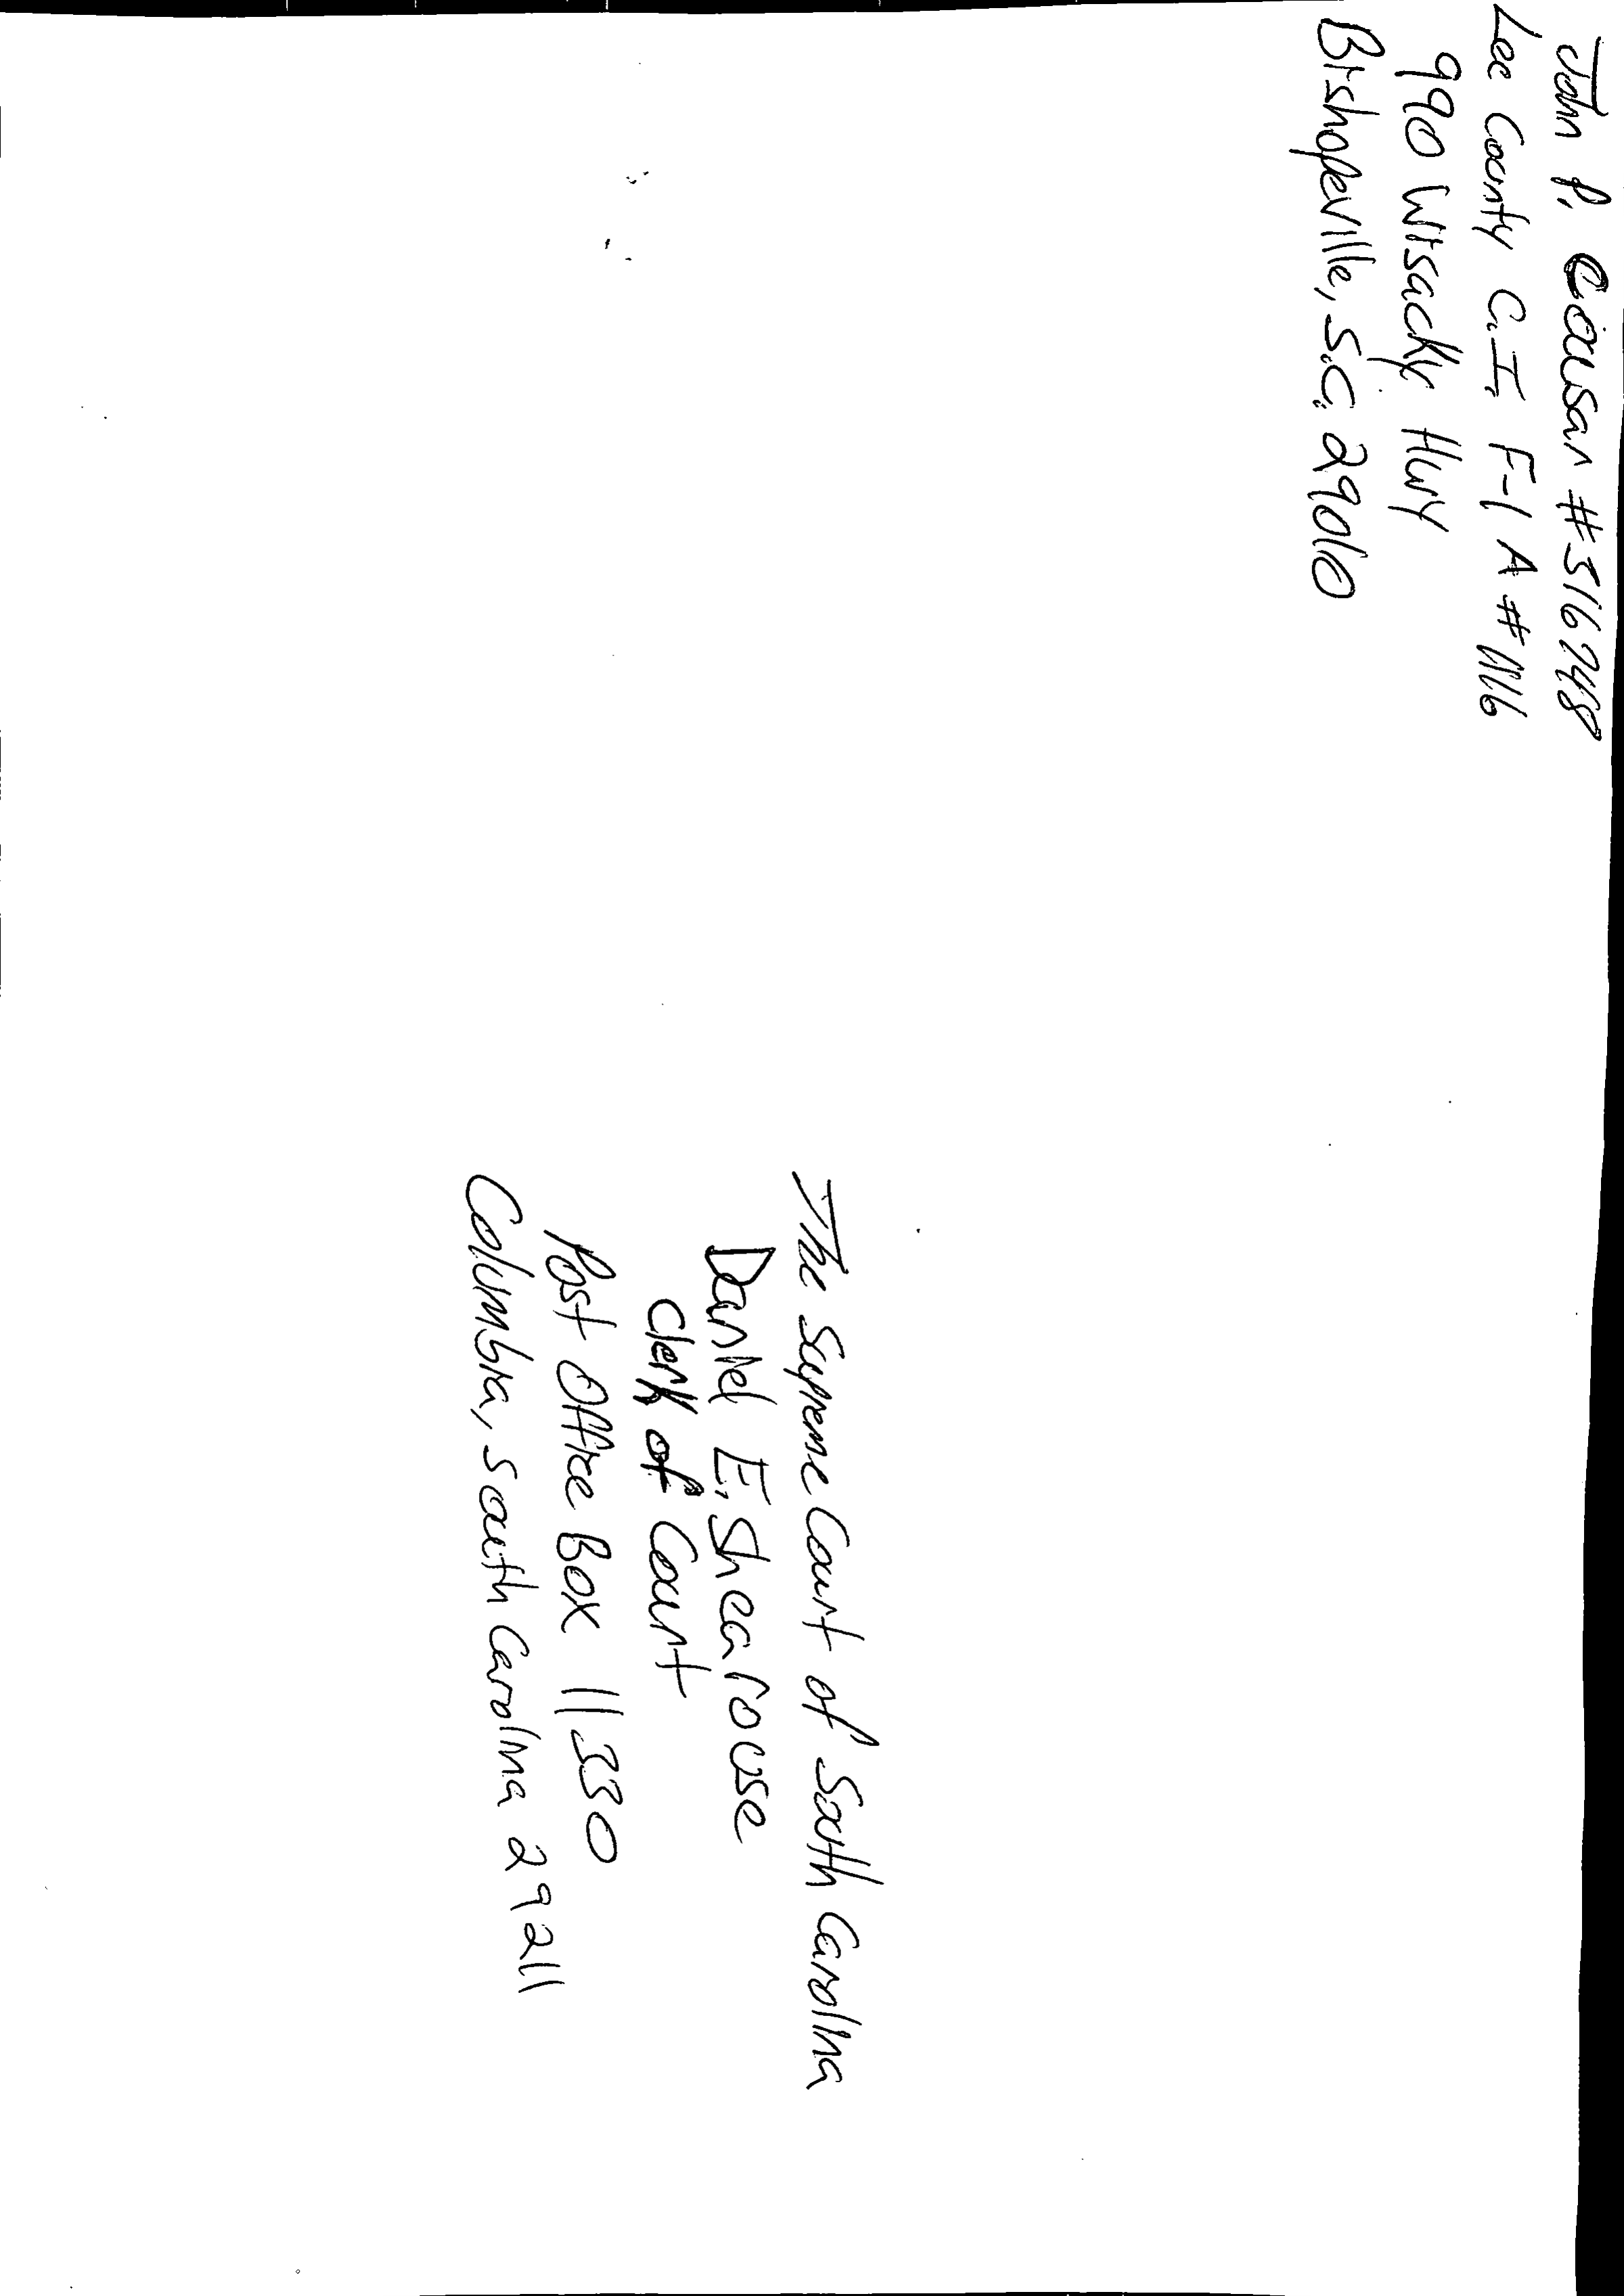 John P. #316748
Lee County C.I. F-1 A # 1116
990 Wisacky Hwy
Bishopville, S.C. 29010
The Supreme Court of South Carolina
Daniel E. Shearouse
Clerk of Court
Post Office Box 11330
Columbia, South Carolina 29211